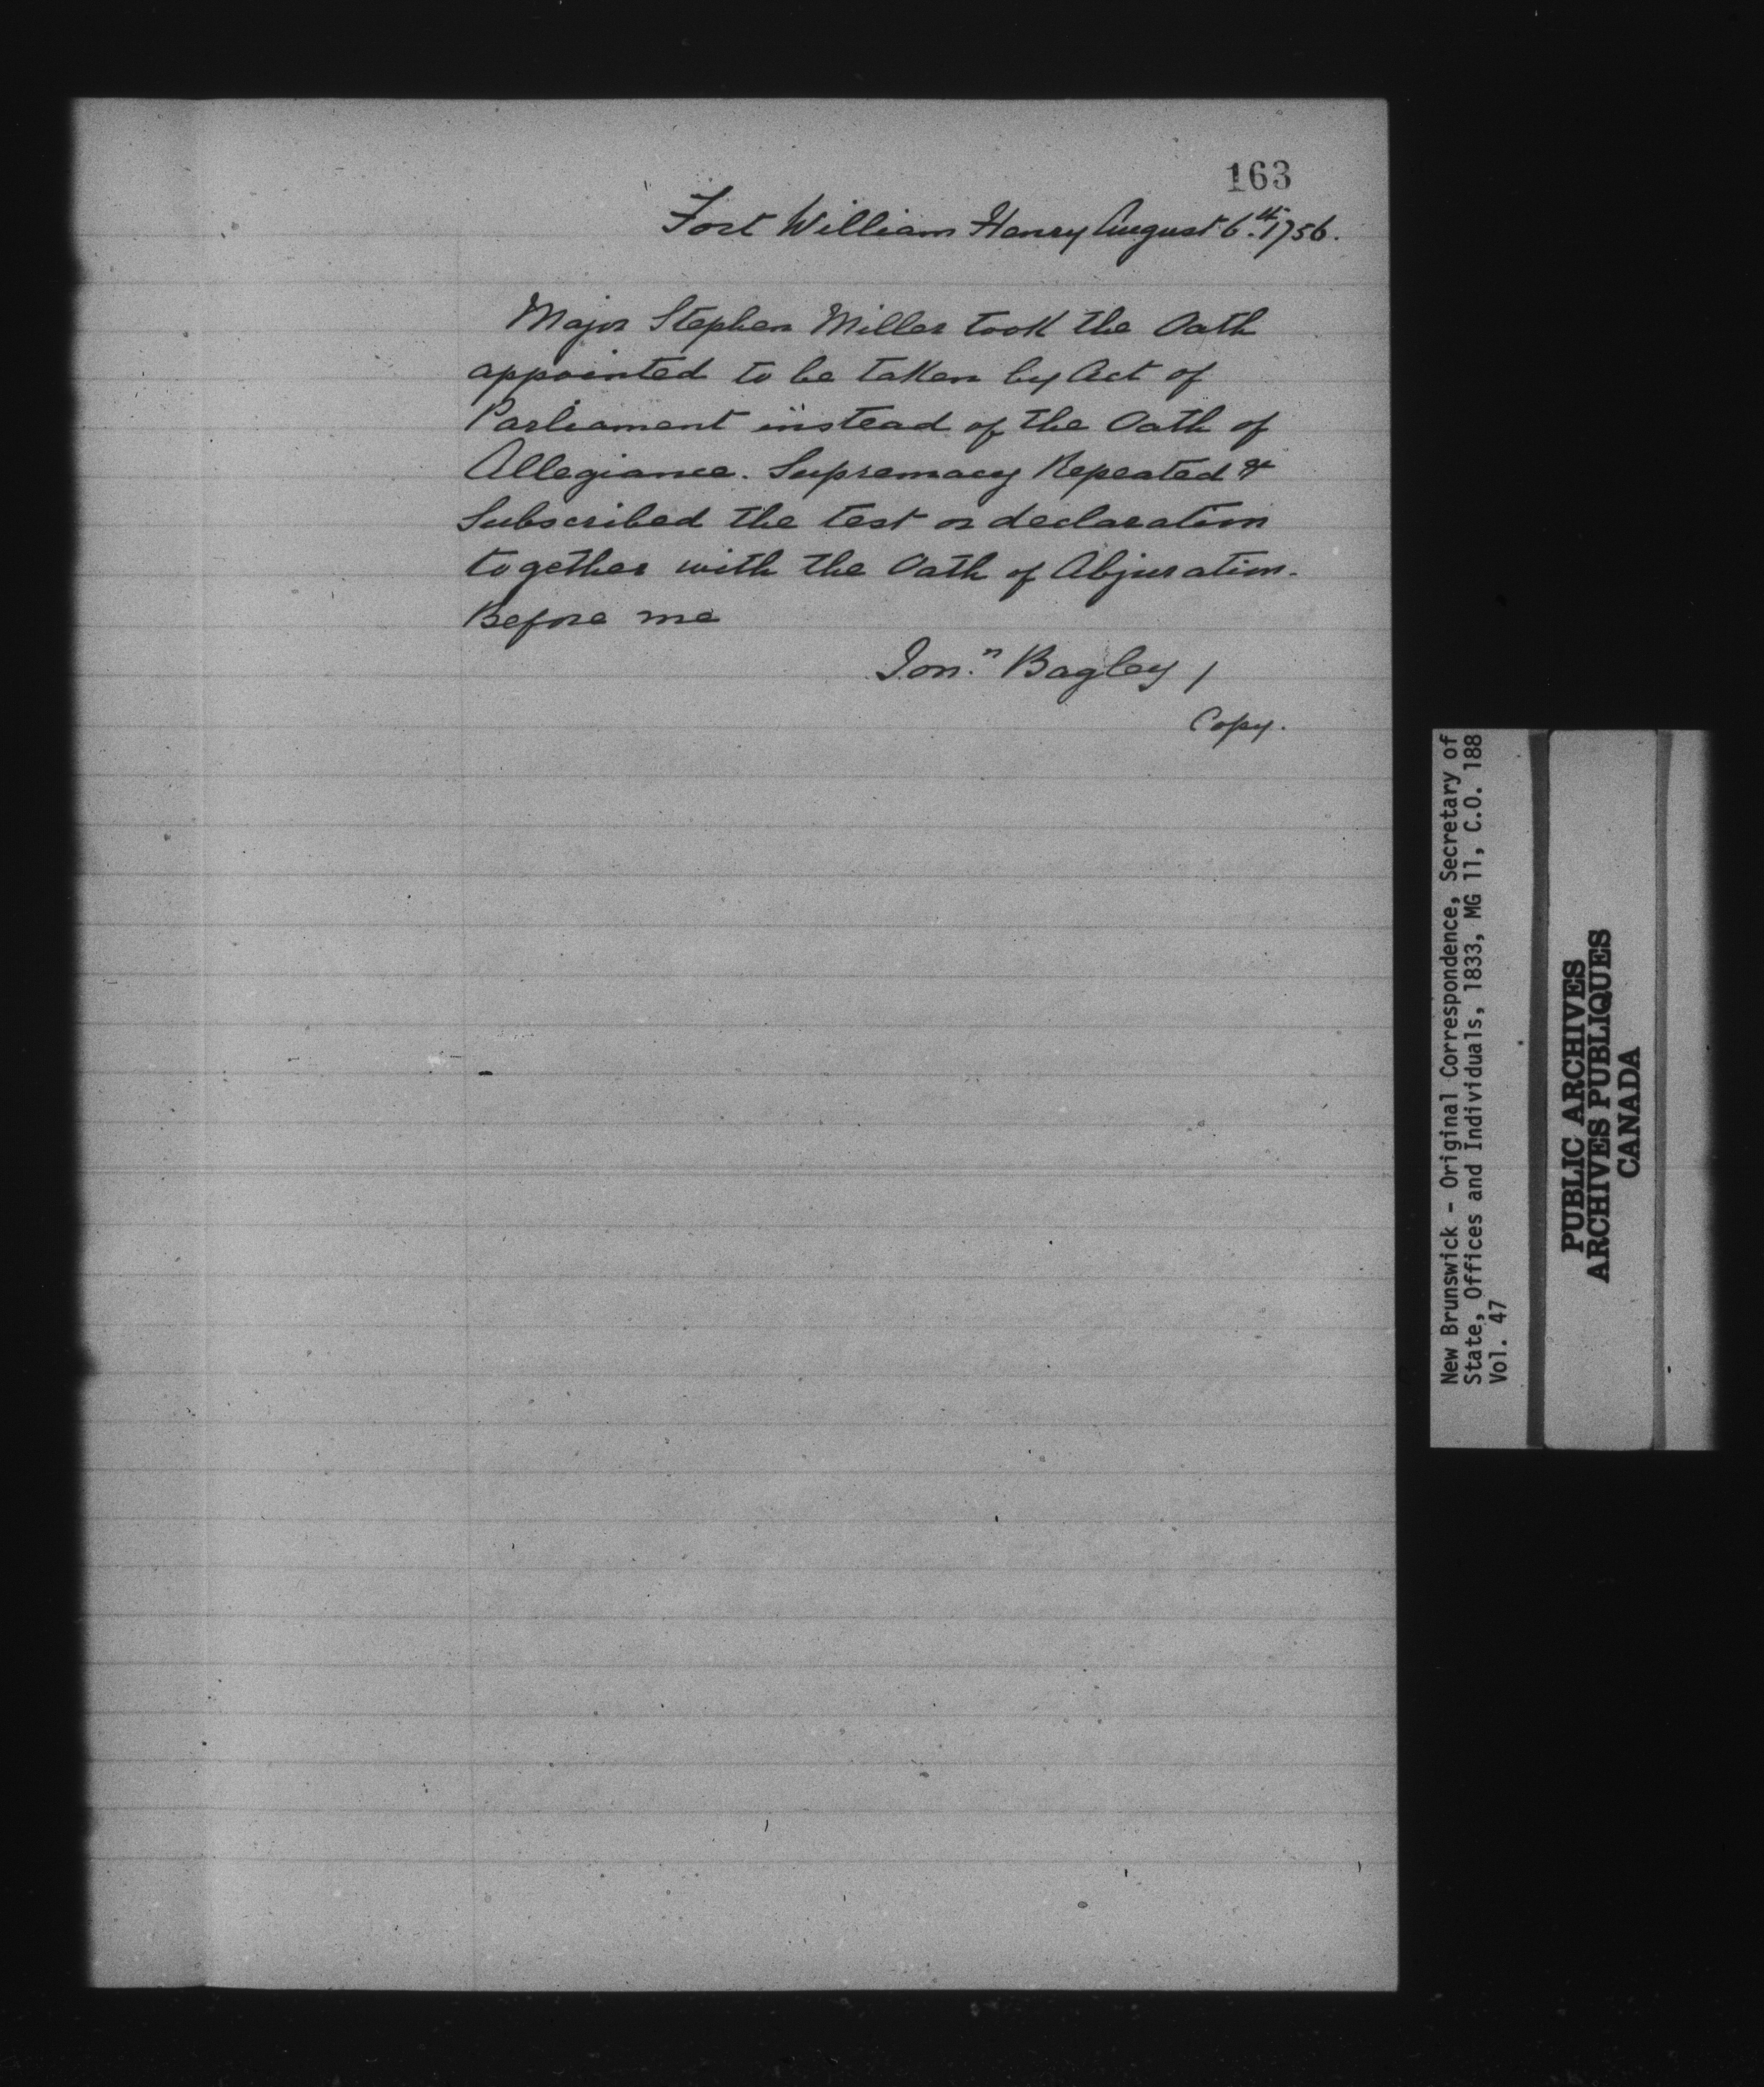 163
Fort William Henry August 6.th 1756.
Major Stephen Miller took the Oath
appointed to be taken by Act of
Parliament instead of the Oath of
Allegiance. Supremacy Repeated &
Subscribed the test or declaration
together with the Oath of Abjuration.
Before me
Jon.n Bagley /
Copy.
New Brunswick - Original Correspondence, Secretary of
State, Offices and Individuals, 1833, MG 11, C.O. 188
Vol. 47
PUBLIC ARCHIVES
ARCHIVES PUBLIQUES
CANADA